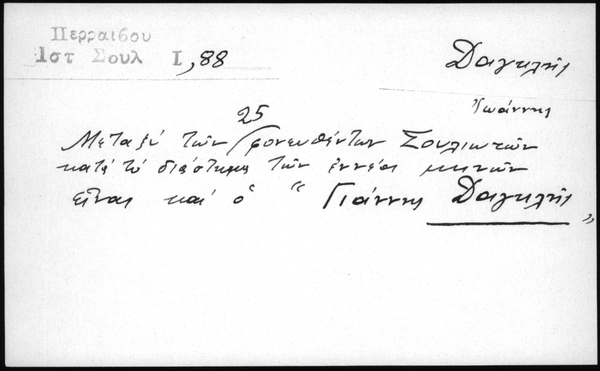 Περραιβου
Ιστ Σουλ Ι, 88
Δαγκλής
Ἰωάννης
25
Μεταξύ τῶν φονευθέντων Σουλιωτῶν
κατά τό διάστημα τῶν ἐννέα μηνῶν
εἶναι καί ὁ "Γιάννης Δαγκλής"